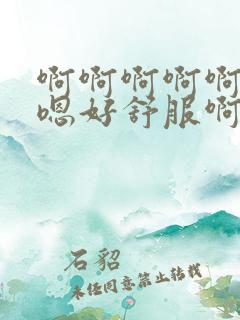 啊啊啊啊啊
嗯好舒服啊
石貂
未经同意禁止转载